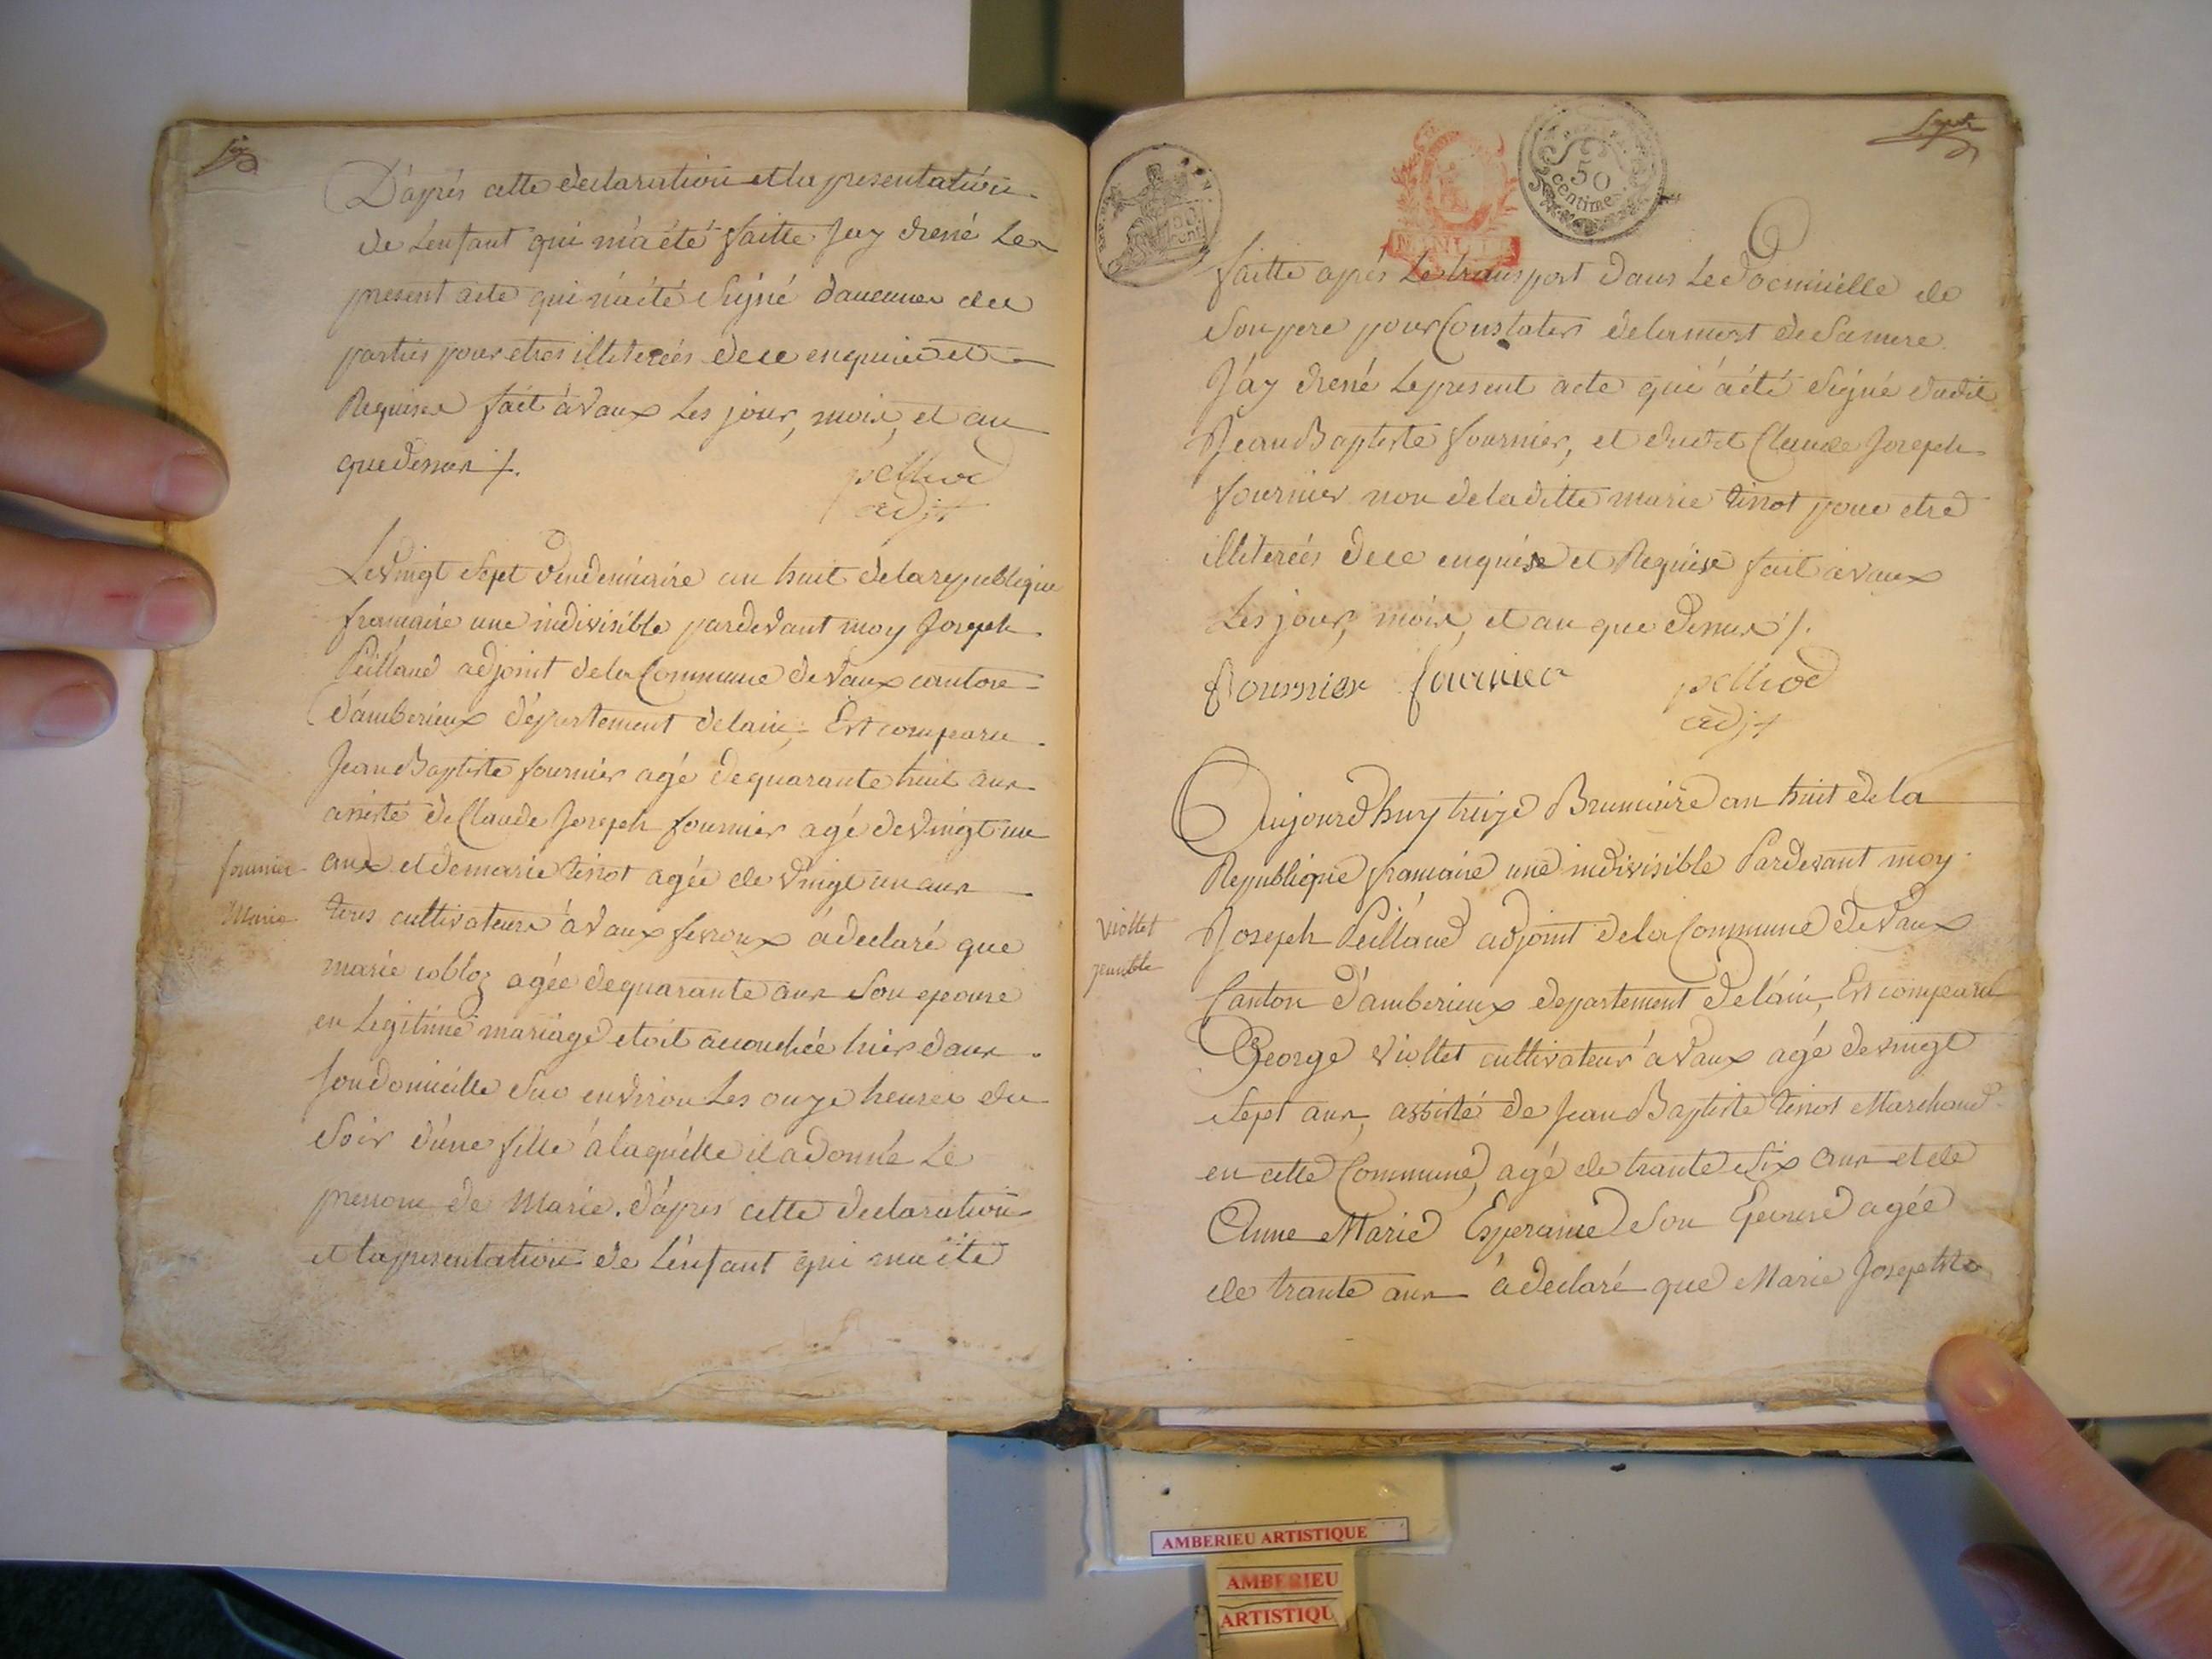 six
D'après cette declaration et la presentation
de Lenfant qui m'a été faitte Jay dressé Le
present acte qui n'a été Signé d'aucunes des
parties pour etres illeterées de ce enquis et
Requises fait à Vaux Les jour, mois, et an
que dessus /.
pelliod
adjt
Le Vingt Sept Vendemiaire an huit de la republique
francaise une indivisible pardevant moy Joseph
Peilland adjoint de la Commune de Vaux canton
d'amberieux département de lain, Est comparu
Jean Baptiste fournier agé de quarante huit ans
assisté de Claude Joseph fournier agé de Vingt un
ans et de marie tissot agée de Vingt un ans
tous cultivateurs à Vaux fevroux à declaré que
marie cobloz agée de quarante ans Son epouse
en Legitime mariage etoit accouchée hier dans
Son domicille Sur environ Les onze heures du
Soir d'une fille à laquelle il a donné Le
prenom de Marie. d'apres cette declaration
et la presentation de L'enfant qui ma été
fournier
Marie
Sept
50
centimes
MINUTE
faitte après Le transport dans Le Docmicille de
Son pere pour Constater de la mort de Sa mere
J'ay dressé Le present acte qui a été Signé dudit
Jean Baptiste fournier, et dudit Claude Joseph
fournier non de la ditte marie tissot pour etre
illeterées de ce enquise et Requise fait à Vaux
Les jour, mois, et an que dessus /.
fournier fournier pelliod
adjt
Aujourd'huy treize Brumaire an huit de la
Republique francaise une indivisible Pardevant moy
Joseph Peilland adjoint de la Commune de Vaux
Canton d'amberieux departement de lain, Est comparu
George Viollet cultivateur à Vaux agé de vingt
Sept ans, assisté de Jean Baptiste tissot Marchand
en cette Commune, agé de trante Six ans et de
Anne Marie Esperance Son Epouse agée
de trante ans à declaré que Marie Josephte
Viollet
AMBERIEU ARTISTIQUE
AMBERIEU
ARTISTIQU